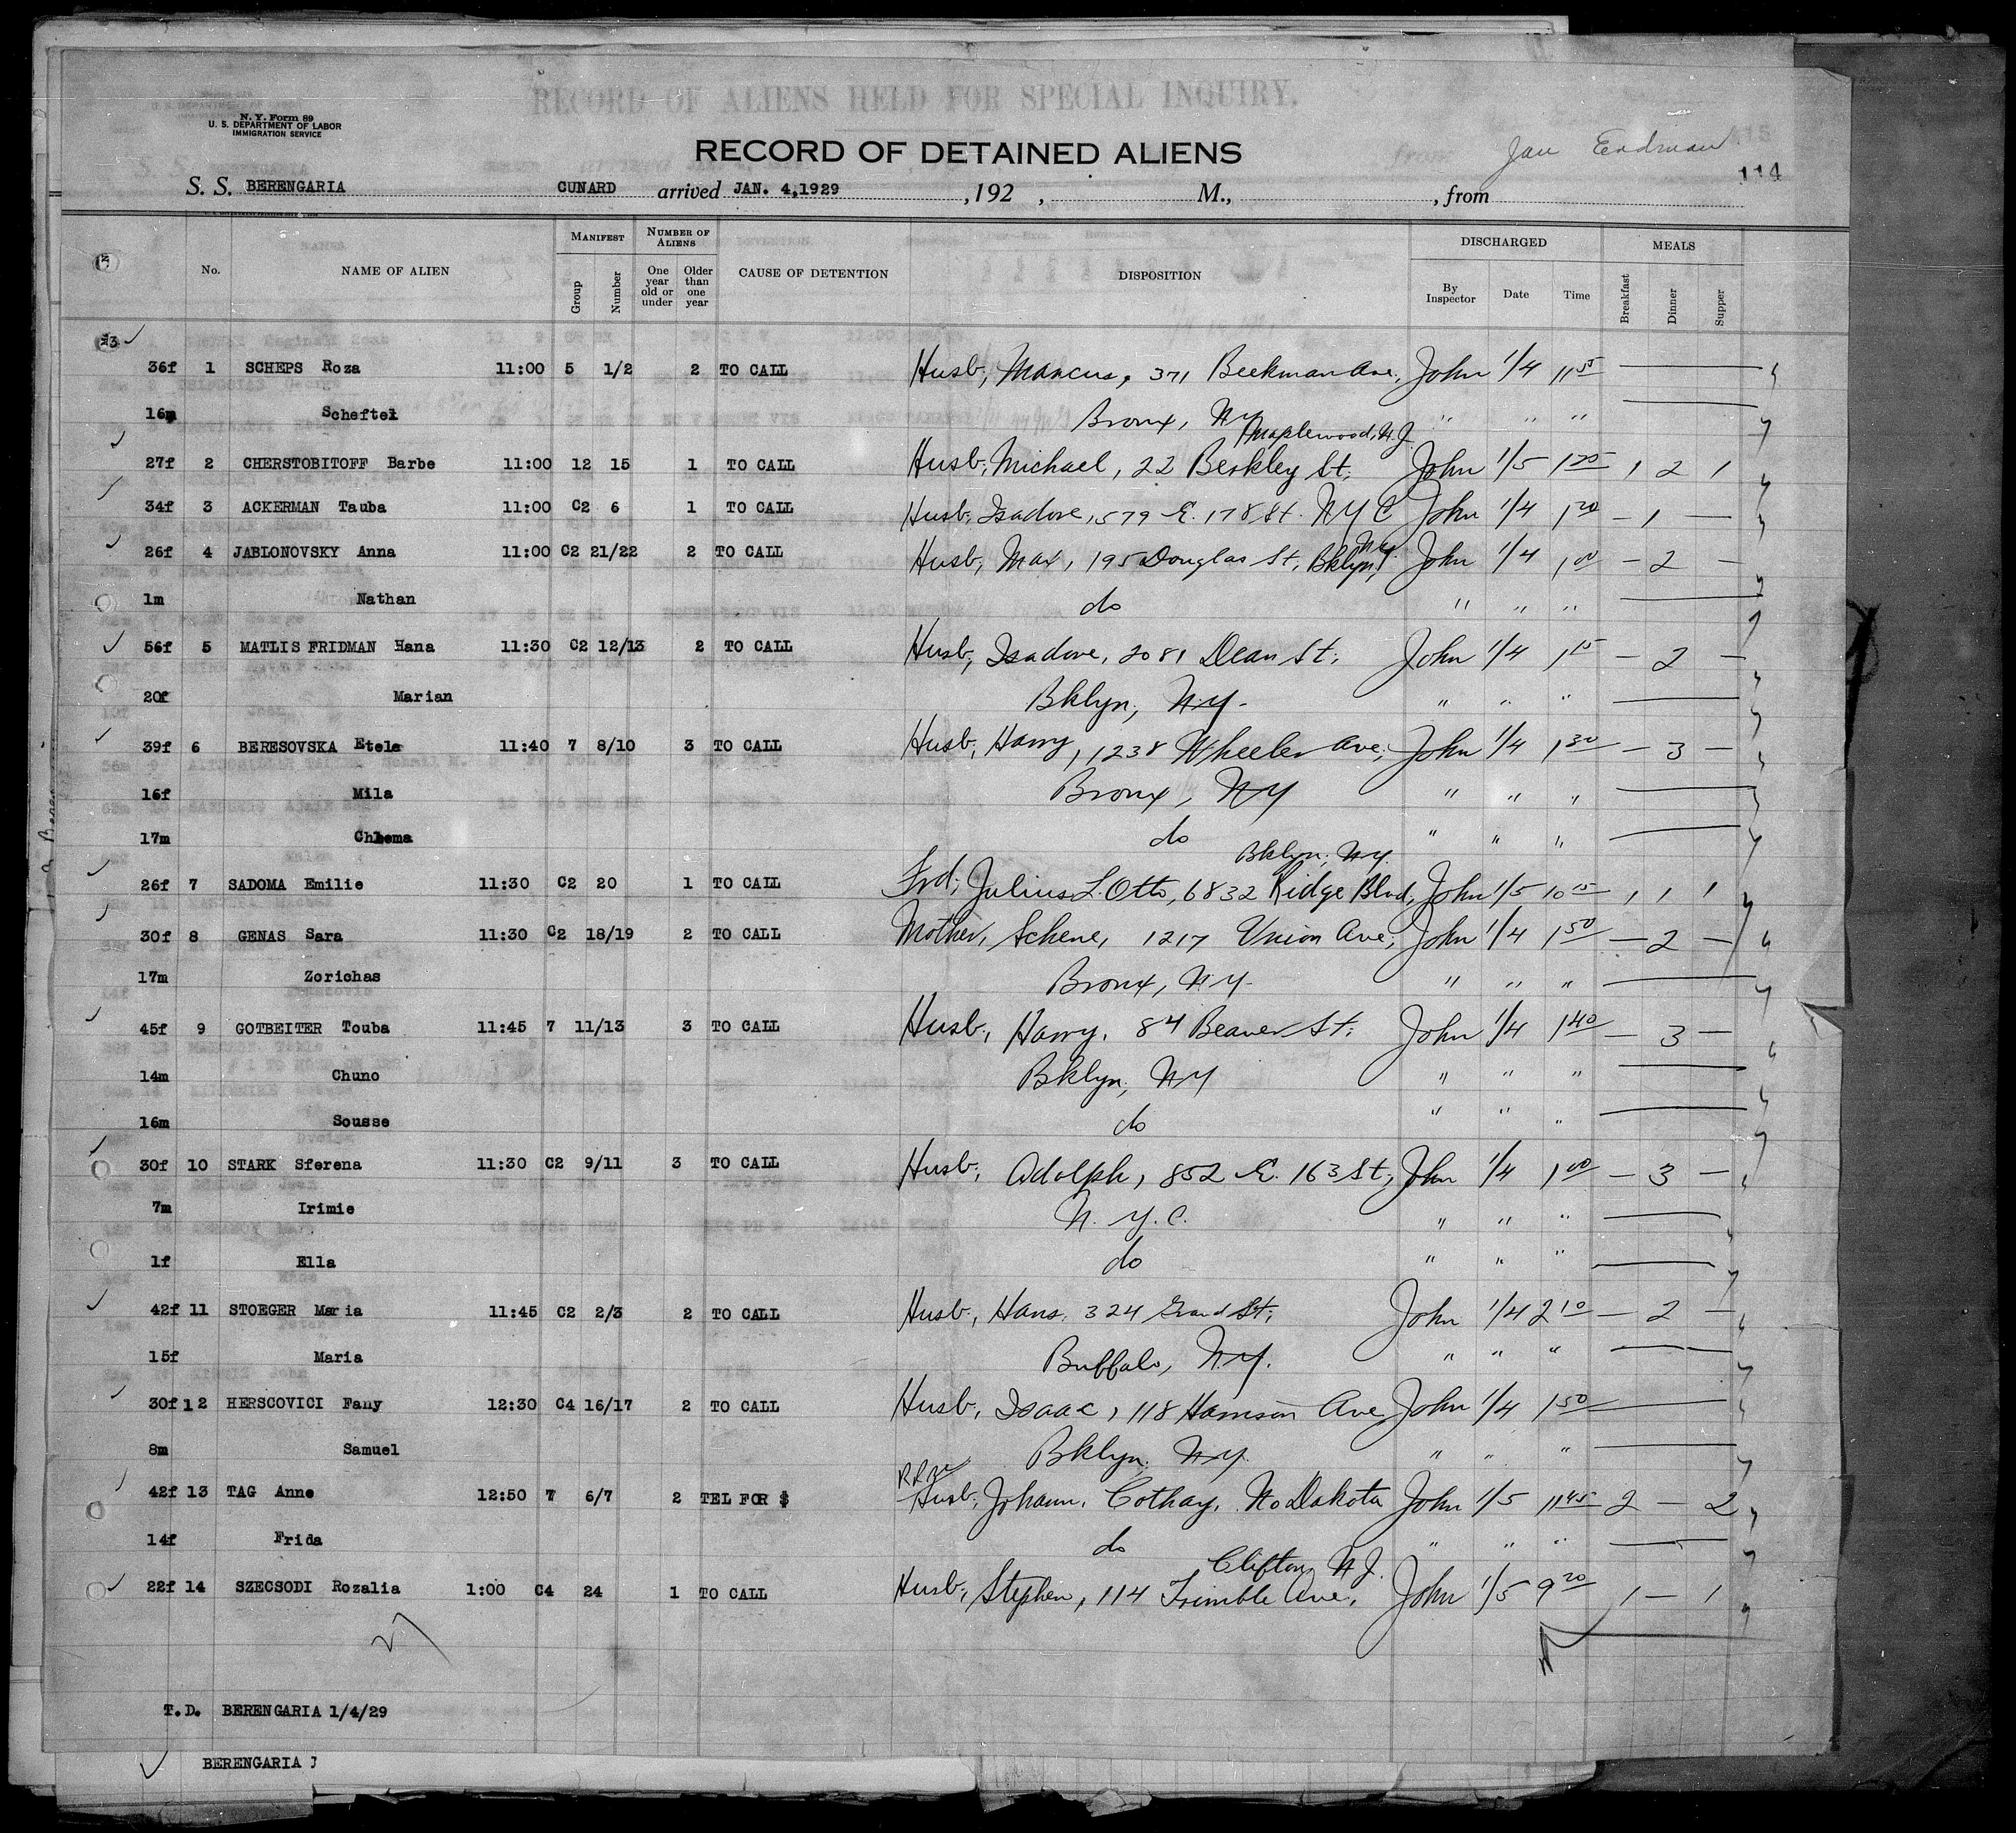 RECORD OF ALIENS HELD FOR SPECIAL INQUIRY.
N. Y. Form 89
U. S. DEPARTMENT OF LABOR
IMMIGRATION SERVICE
RECORD OF DETAINED ALIENS
114
S. S. BERENGARIA CUNARD arrived JAN. 4,1929 , 192 , M., , from
No. NAME OF ALIEN MANIFEST Group Number NUMBER OF ALIENS One year old or under Older than one year CAUSE OF DETENTION DISPOSITION DISCHARGED By Inspector Date Time MEALS Breakfast Dinner Supper
36f 1 SCHEPS Roza 11:00 5 1/2 2 TO CALL Husb, Marcus, 371 Beekman Ave, John 1/4 11 55
16m Scheftel Bronx, NY " " "
Maplewood, N.J.
27f 2 CHERSTOBITOFF Barbe 11:00 12 15 1 TO CALL Husb, Michael, 22 Berkley St, John 1/5 1 25 1 2 1
34f 3 ACKERMAN Tauba 11:00 C2 6 1 TO CALL Husb, Isadore, 579 E. 178 St. NYC John 1/4 1 20 — 1 —
26f 4 JABLONOVSKY Anna 11:00 C2 21/22 2 TO CALL Husb, Max, 195 Douglas St, Bklyn, NY. John 1/4 1 00 — 2 —
1m Nathan do " " "
56f 5 MATLIS FRIDMAN Hana 11:30 C2 12/13 2 TO CALL Husb, Isadore, 2081 Dean St, John 1/4 1 15 — 2 —
20f Marian Bklyn, N.Y. " " "
39f 6 BERESOVSKA Etela 11:40 7 8/10 3 TO CALL Husb, Harry, 1238 Wheeler Ave, John 1/4 1 30 — 3 —
16f Mila Bronx, NY " " "
17m Chlema do " " "
Bklyn, NY.
26f 7 SADOMA Emilie 11:30 C2 20 1 TO CALL Frd, Julius L. Otto, 6832 Ridge Blvd, John 1/5 10 15 1 1 1
30f 8 GENAS Sara 11:30 C2 18/19 2 TO CALL Mother, Schene, 1217 Union Ave, John 1/4 1 50 — 2 —
17m Zorichas Bronx, N.Y. " " "
45f 9 GOTBEITER Touba 11:45 7 11/13 3 TO CALL Husb, Harry, 84 Beaver St, John 1/4 1 40 — 3 —
14m Chuno Bklyn, NY " " "
16m Sousse do " " "
30f 10 STARK Sferena 11:30 C2 9/11 3 TO CALL Husb, Adolph, 852 E. 163 St, John 1/4 1 00 — 3 —
7m Irimie N.Y.C. " " "
1f Ella do " " "
42f 11 STOEGER Maria 11:45 C2 2/3 2 TO CALL Husb, Hans, 324 Grand St, John 1/4 2 10 — 2 —
15f Maria Buffalo, N.Y. " " "
30f 12 HERSCOVICI Fany 12:30 C4 16/17 2 TO CALL Husb, Isaac, 118 Harrison Ave John 1/4 1 50
8m Samuel Bklyn, NY. " " "
42f 13 TAG Anne 12:50 7 6/7 2 TEL FOR $ Husb, Johann, Cothay, No Dakota John 1/5 11 45 2 — 2
14f Frida do " " "
Clifton, N.J.
22f 14 SZECSODI Rozalia 1:00 C4 24 1 TO CALL Husb, Stephen, 114 Trimble Ave, John 1/5 9 20 1 — 1
27
T.D. BERENGARIA 1/4/29
BERENGARIA